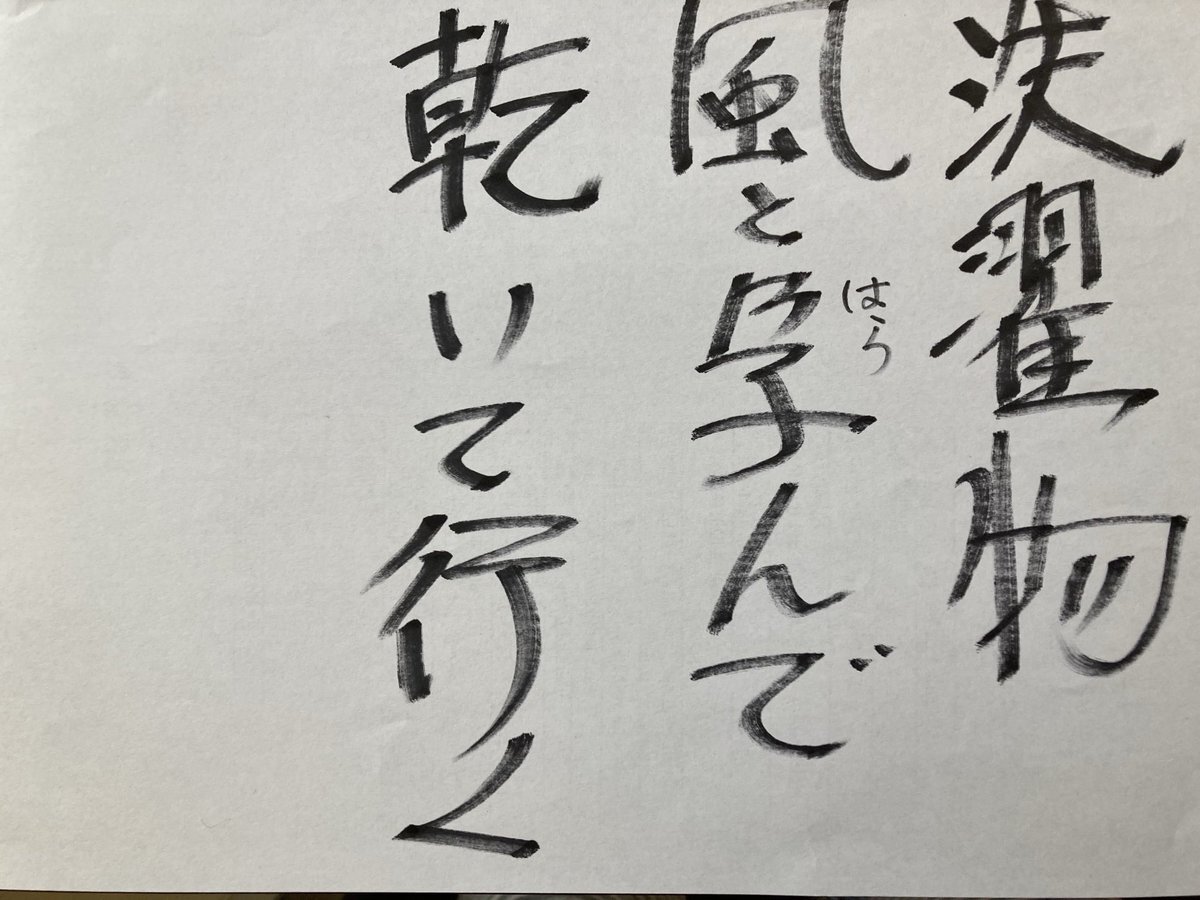 洗濯物
風と孕んで
はら
乾いて行く